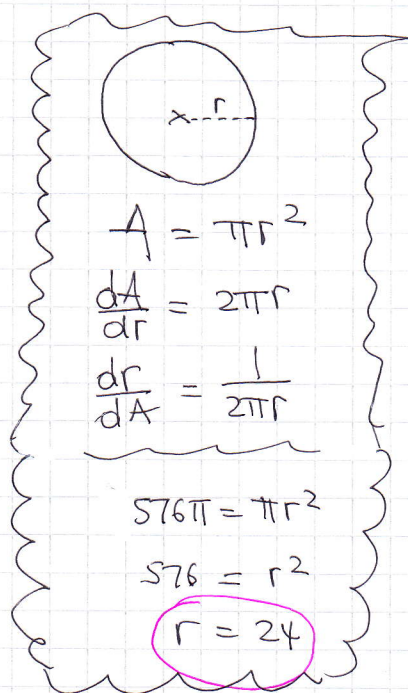 x r
A = πr²
dA/dr = 2πr
dr/dA = 1/2πr
576π = πr²
576 = r²
r = 24